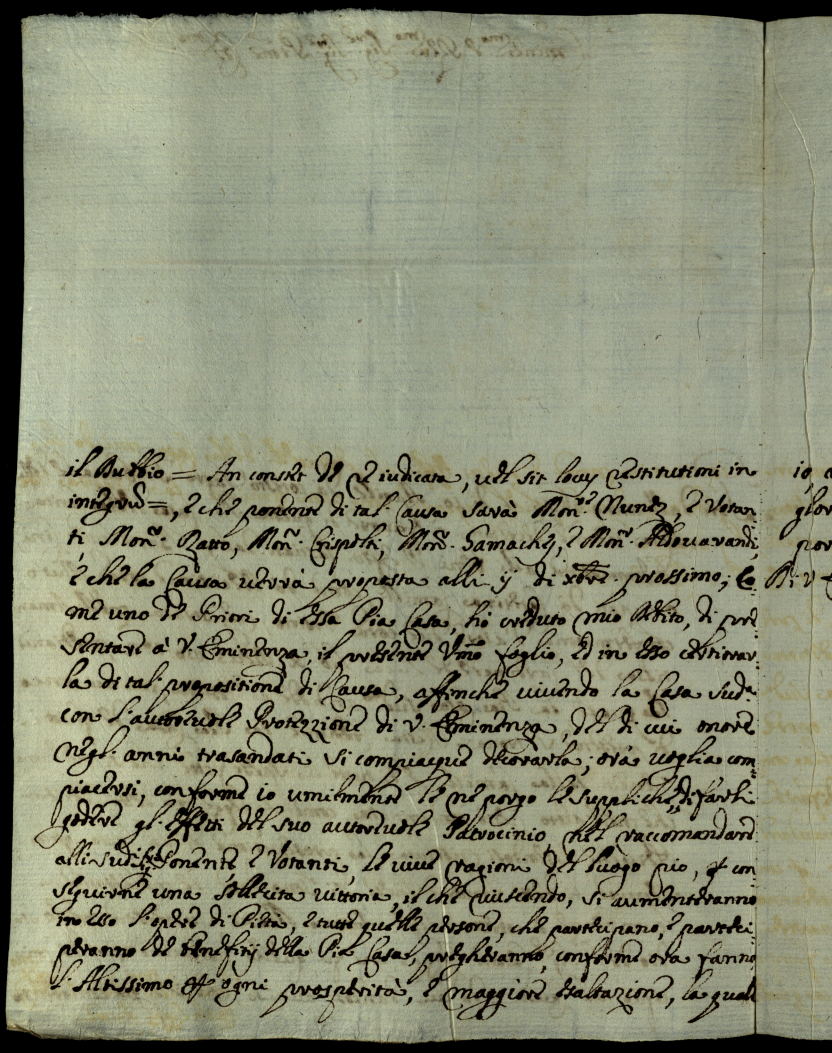 il Dubbio = An constet de re iudicata, vel sit locus restitutioni in
integrũ =, e che ponente di tal Causa sarà Monr.e Nunez, e Votan
ti Monr. Ratto, Monr. Crispolti, Monr. Samachj, e Monr. Aldovarandi,
e che la Causa verrà proposta alli ij di xbre prossimo; Co
me uno de Priori di essa Pia Casa, hò creduto mio debito, di pre
sentare à V. Eminenza, il presente Vmo foglio, ed in esso certiorar
la di tal propositione di Causa, affinche vivendo la Casa Sud.a
con l'autorevole Protezzione di V. Eminenza, del di cui onore
negl'anni trasandati si compiacque decorarla; ora voglia com
piacersi, conforme io umilmente le ne porgo le suppliche, di farli
godere gl'effetti del suo autorevole Patrocinio, nel raccomandare
alli sud.ti Ponente e Votanti, le vive ragioni del luogo pio, per con
seguirne una sollecita vittoria, il che riuscendo, si aumenteranno
in esso l'opere di Pietà, e tutte quelle persone, che partecipano, e parteci
peranno de benefitij della Pia Casa, pregheranno, conforme ora fanno
l'Altissimo per ogni prosperità, e maggiore esaltazione, la quale